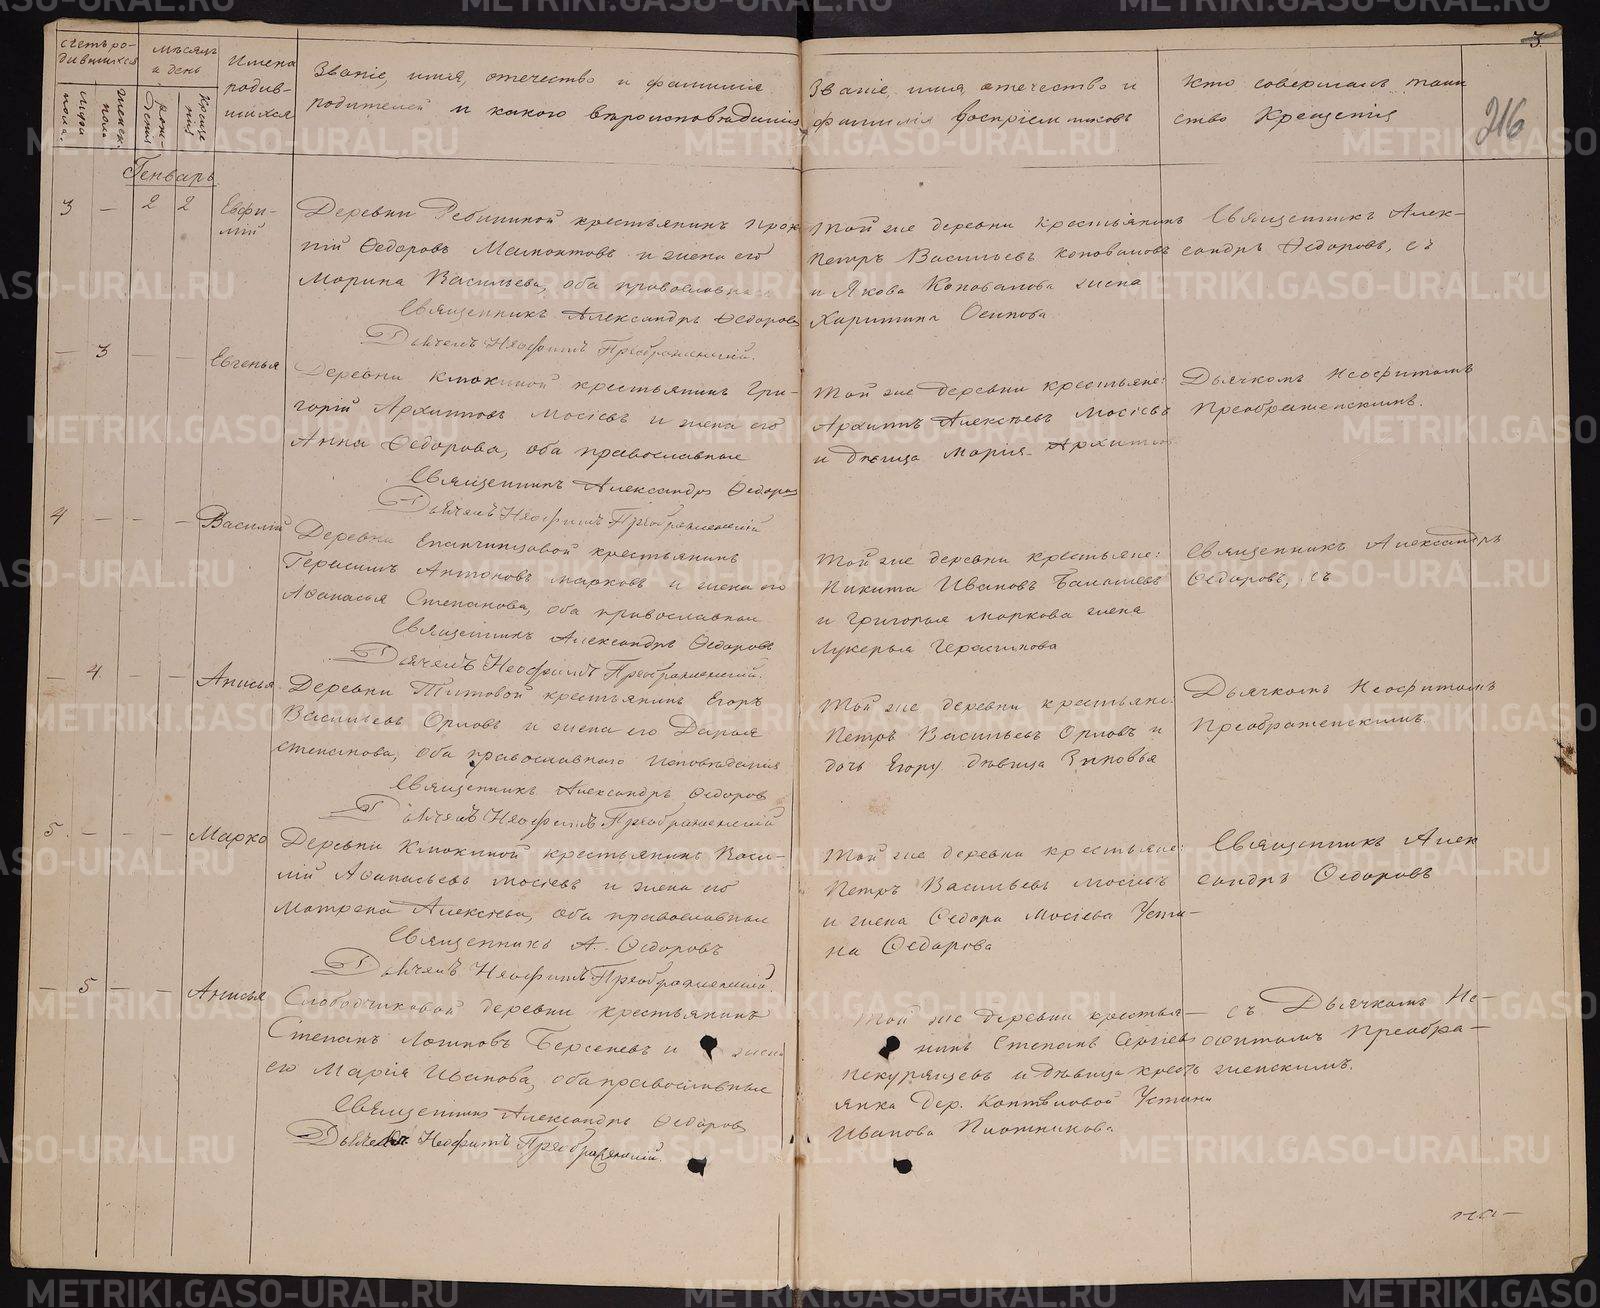 3.
216
Счетъ ро-
дившихся
Мужа
пола.
Женск.
пола.
Мѣсяцъ
и день
рож-
денія
креще
нія
Имена
родив-
шихся
Званіе, имя, отечество и фамилія
родителей и какого вѣроисповѣданія
Званіе, имя, отечество и
фамилія воспріемниковъ
Кто совершалъ таин
ство Крещенія
Генварь
3 — 2 2
Евфи-
мій
Деревни крестьянинъ Прок
пій Ѳедоровъ Мамонтовъ и жена его
Марина Васильева, оба православные
Священникъ Александръ Ѳедоровъ
Дьячекъ Неофитъ Преображенскій.
Той же деревни крестьянинъ
Петръ Васильевъ Коноваловъ
и Якова Коновалова жена
Харитина Осипова
Священникъ Алек-
сандръ Ѳедоровъ, съ
— 3 — —
Евгенья
Деревни Клюкиной крестьянинъ Гри-
горій Архиповъ Мосіевъ и жена его
Анна Ѳедорова, оба православные
Священникъ Александръ Ѳедоровъ
Дьячекъ Неофитъ Преображенскій
Той же деревни крестьяне:
Архипъ Алексѣевъ Мосіевъ
и дѣвица Марія Архипова
Дьячкомъ Неофитомъ
Преображенскимъ.
4 — — —
Василій
Деревни Епанчинцовой крестьянинъ
Герасимъ Антоновъ Марковъ и жена его
Афанасья Степанова, оба православные
Священникъ Александръ Ѳедоровъ
Дьячекъ Неофитъ Преображенскій.
Той же деревни крестьяне:
Никита Ивановъ Балашевъ
и Григорья Маркова жена
Лукерья Герасимова
Священникъ Александръ
Ѳедоровъ, съ
— 4 — —
Анисья
Деревни Титовой крестьянинъ Егоръ
Васильевъ Орловъ и жена его Дарья
Степанова, оба православнаго исповѣданія
Священникъ Александръ Ѳедоровъ
Дьячекъ Неофитъ Преображенскій
Той же деревни крестьяне
Петръ Васильевъ Орловъ и
дочь Егору дѣвица Зиновья
Дьячкомъ Неофитомъ
Преображенскимъ.
5 — — —
Марко
Деревни Клюкиной крестьянинъ Васи-
лій Афанасьевъ Мосіевъ и жена его
Матрена Алексѣева, оба православные
Священникъ А. Ѳедоровъ
Дьячекъ Неофитъ Преображенскій.
Той же деревни крестьяне:
Петръ Васильевъ Мосіевъ
и жена Ѳедора Мосіева Усти-
на Ѳедорова
Священникъ Алек
сандръ Ѳедоровъ
— 5 — —
Анисья
Слободчиковой деревни крестьянинъ
Степанъ Логиновъ Берсеневъ и жена
его Марія Иванова, оба православные
Священникъ Александръ Ѳедоровъ
Дьячекъ Неофитъ Преображенскій.
Той же деревни крестья-
нинъ Степанъ Сергіевъ
Некурящевъ и дѣвица крестъ
янка Дер. Коптѣловой Устина
Иванова Плотникова
съ Дьячкомъ Не-
офитомъ Преобра-
женскимъ.
METRIKI.GASO-URAL.RU